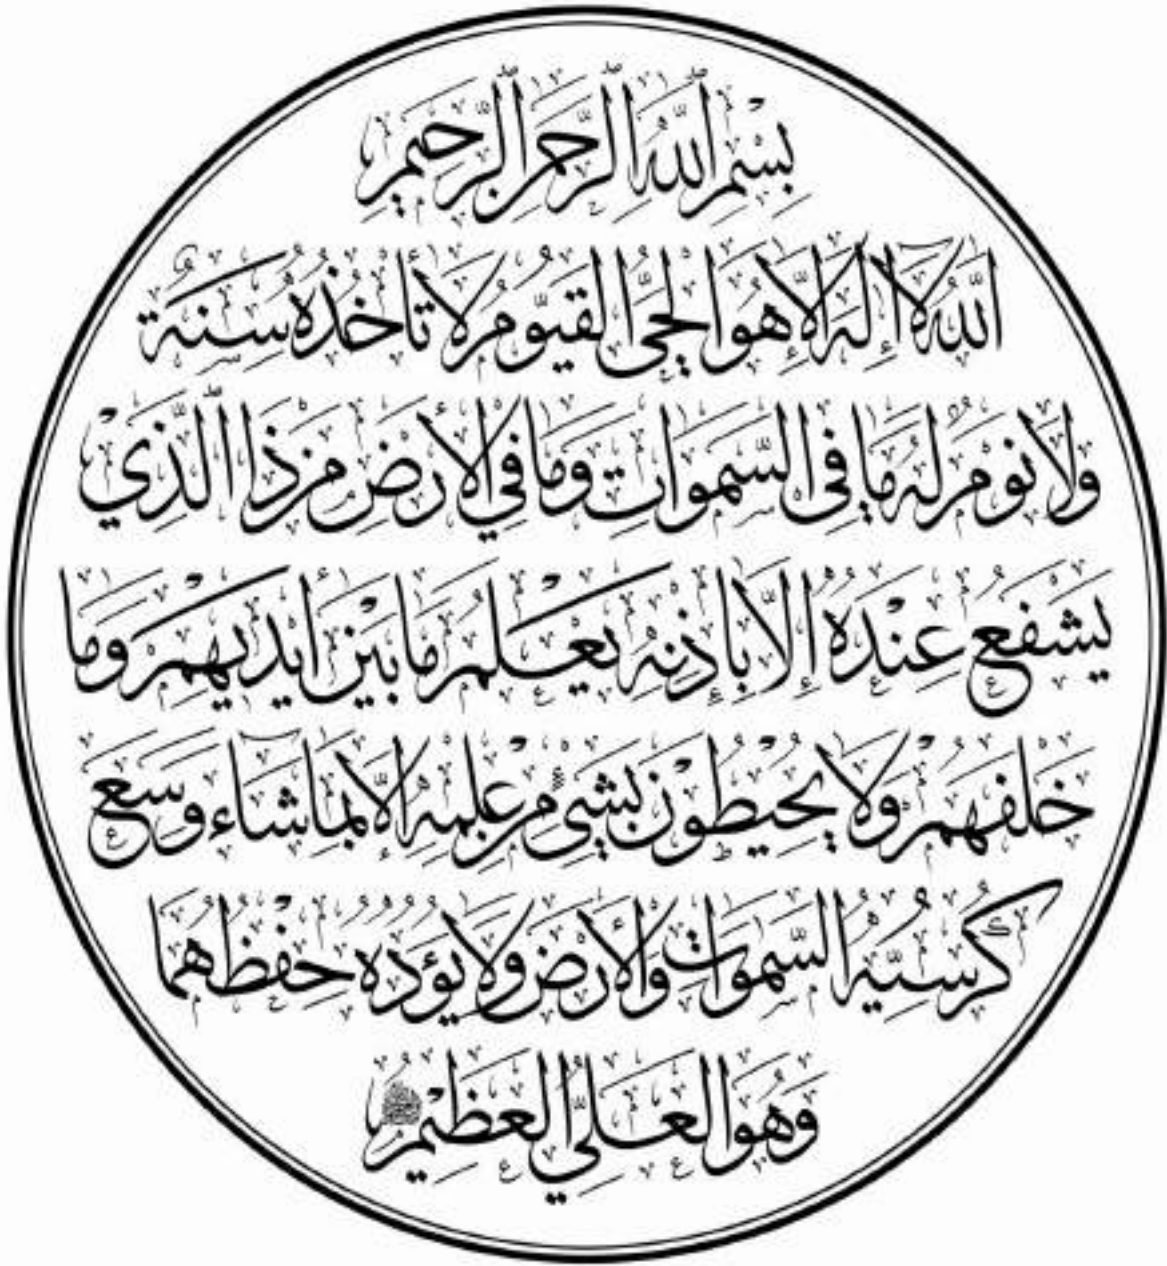 بِسْمِ اللَّهِ الرَّحْمَنِ الرَّحِيمِ
اللَّهُ لَا إِلَهَ إِلَّا هُوَ الْحَيُّ الْقَيُّومُ لَا تَأْخُذُهُ سِنَةٌ
وَلَا نَوْمٌ لَهُ مَا فِي السَّمَوَاتِ وَمَا فِي الْأَرْضِ مَنْ ذَا الَّذِيْ
يَشْفَعُ عِنْدَهُ إِلَّا بِإِذْنِهِ يَعْلَمُ مَا بَيْنَ أَيْدِيهِمْ وَمَا
خَلْفَهُمْ وَلَا يُحِيْطُوْنَ بِشَيْءٍ مِنْ عِلْمِهِ إِلَّا بِمَا شَآءَ وَسِعَ
كُرْسِيُّهُ السَّمَوَاتِ وَالْأَرْضَ وَلَا يَؤُدُهُ حِفْظُهُمَا
وَهُوَ الْعَلِيُّ الْعَظِيْمُ